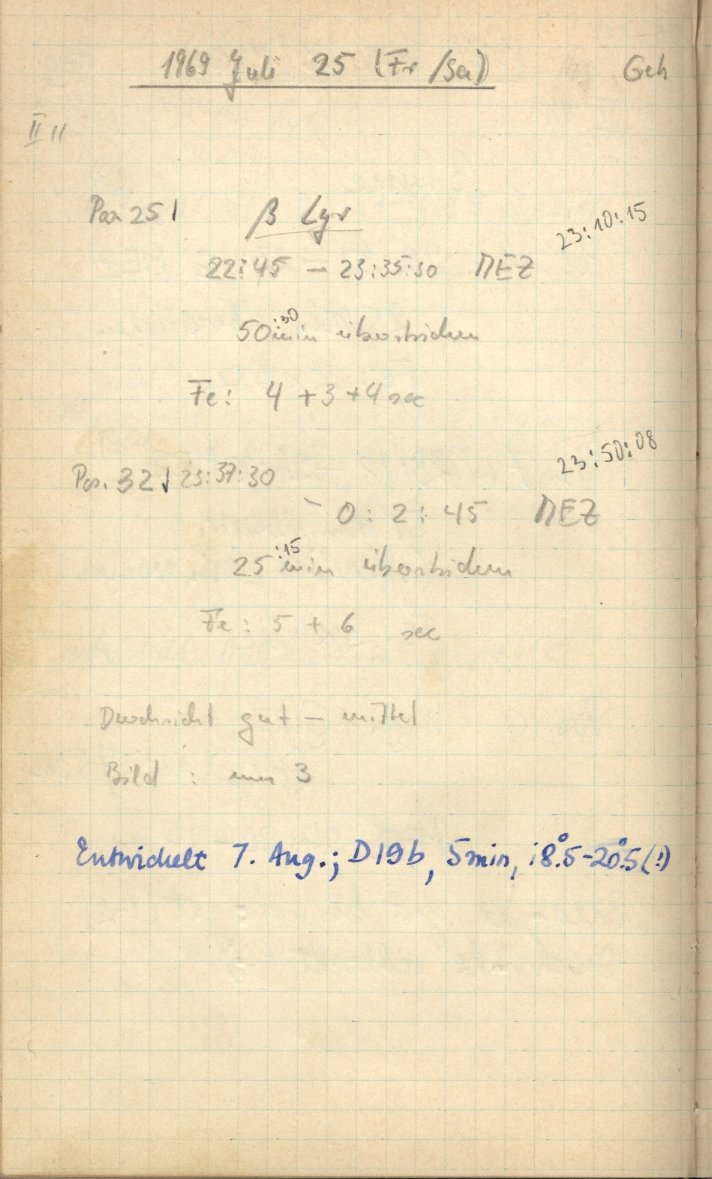 1969 Juli 25 (Fr/Sa) Geh
II 11
Pos. 251 β Lyr 23:10:15
22:45 – 23:35:30 MEZ
50:30 min überstrichen
Fe: 4 + 3 + 4 sec
Pos. 32 23:37:30 23:50:08
– 0:2:45 MEZ
25:15 min überstrichen
Fe: 5 + 6 sec
Durchsicht gut – mittel
Bild : um 3
Entwickelt 7. Aug.; D19b, 5min, 18°.5-20°.5(!)